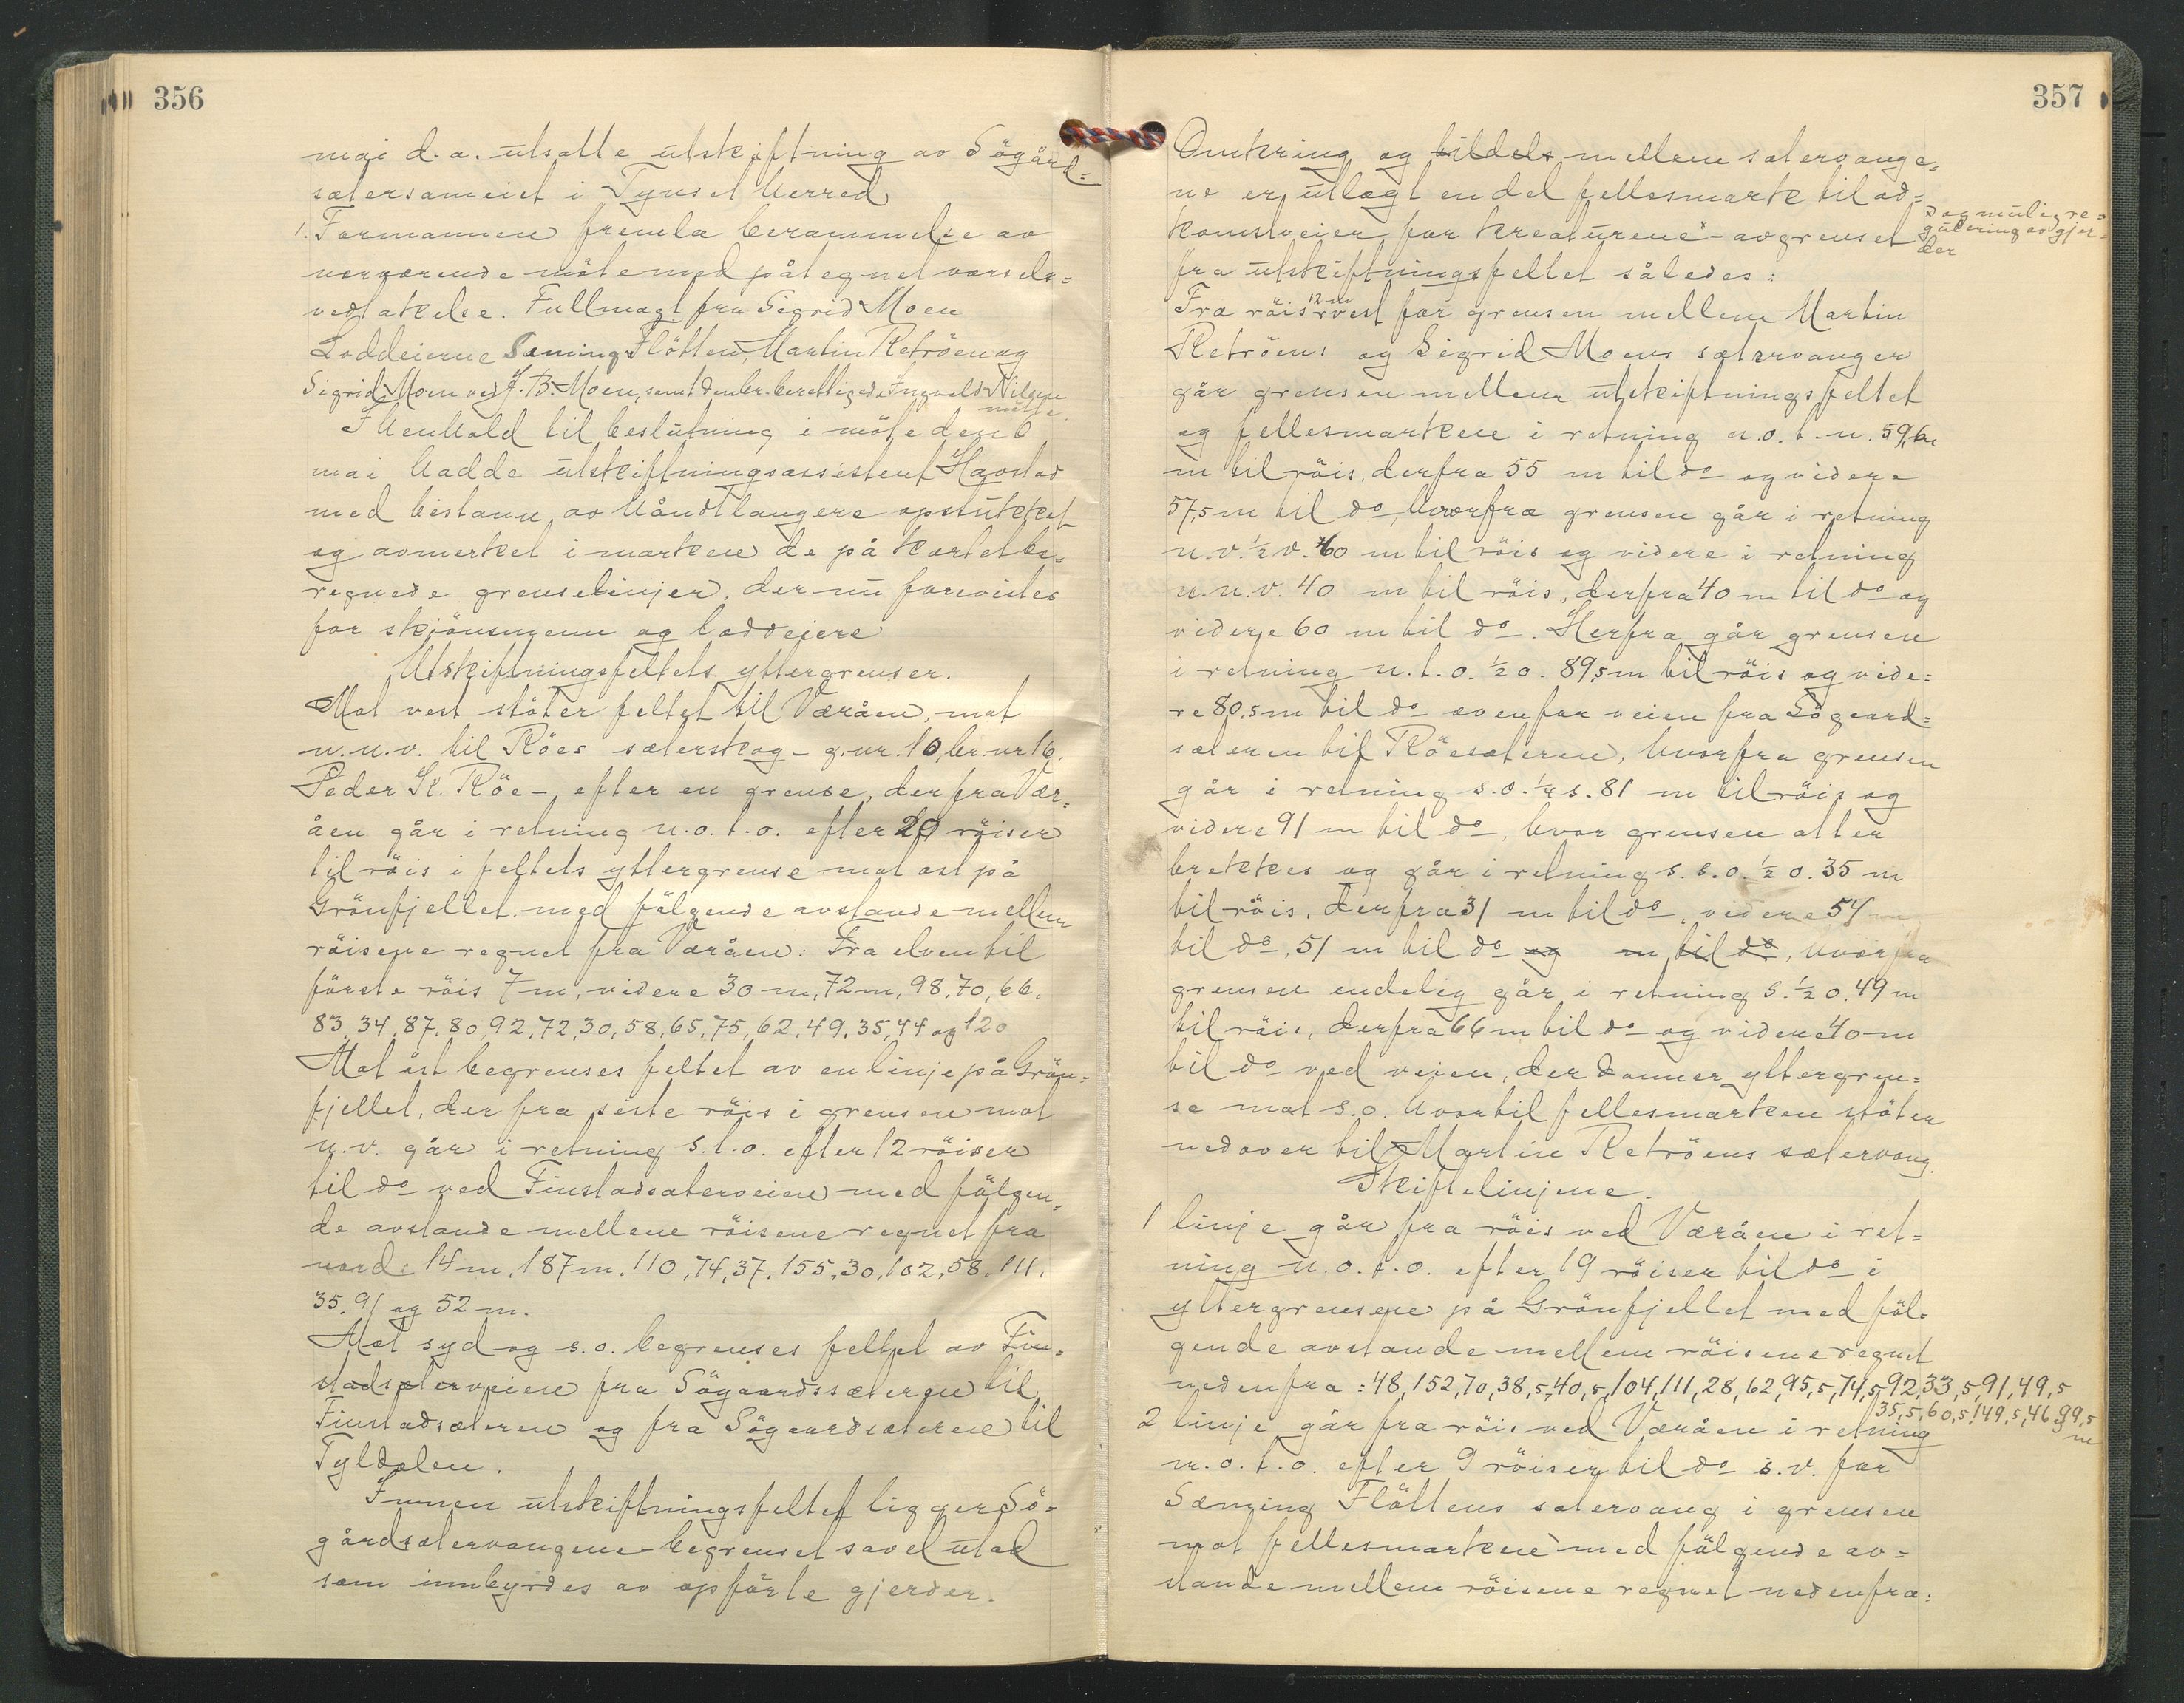 356
mai d.a. utsatte utskiftning av Sögård-
sætersameiet i Tynset herred
1. Formannen fremla berammelse av
nærværende møte med påtegnet varsels-
vedtakelse. Fullmagt fra Sigrid Moen
Loddeierne Sæming Flötten, Martin Retröen og
Sigrid Moen ved J. B. Moen, samt den br. berettigede Ingvald Nilsen
møtte.
I henhold til beslutning i møte den 6
mai hadde utskiftningsassistent Havstad
med bistann av håndtlangere opstukket
og avmerket i marken de på kartet be-
regnede grenselinjer, der nu forevistes
for skjönsmenn og loddeiere
Utskiftningsfeltets yttergrenser.
Mot vest stöter feltet til Væråen, mot
n.n.v. til Röes sæterskog - g.nr. 10, br.nr 16,
Peder K. Röe -, efter en grense, der fra Vær-
åen går i retning n.o.t.o. efter 20 röiser
til röis i feltets yttergrense mot ost på
Grönfjellet med fölgende avstande mellem
röisene regnet fra Væråen: Fra elven til
förste röis 7 m, videre 30 m, 72 m, 98, 70, 66,
83, 34, 87, 80, 92, 72, 30, 58, 65, 75, 62, 49, 35, 44 og 120
Mot öst begrenses feltet av en linje på Grön-
fjellet, der fra siste röis i grensen mot
n.v. går i retning s.t.o. efter 12 röiser
til do ved Finstadsæterveien med fölgen-
de avstande mellem röisene regnet fra
nord: 14 m, 187 m, 110, 74, 37, 155, 30, 102, 58, 111,
35, 91 og 52 m.
Mot syd og s.o. begrenses feltet av Fin-
stadsæterveien fra Sögaardssæteren til
Finstadsæteren og fra Sögaardsæteren til
Tyldalen.
Innen utskiftningsfeltet ligger Sö-
gårdsætervangene - begrenset såvel utad
som innbyrdes av opförte gjerder.
357
Omkring og tildels mellem sætervange-
ne er utlagt en del fellesmark til ad-
komstveier for kreaturene - avgrenset
og mulig re-
gulering av gjer-
der
fra utskiftningsfeltet således:
Fra röis 12 m vest for grensen mellem Martin
Retröens og Sigrid Moens sætervanger
går grensen mellem utskiftningsfeltet
og fellesmarken i retning n.o.t.n. 59,6
m til röis, derfra 55 m til do og videre
57,5 m til do, hvorfra grensen går i retning
n.v. ½ v. 60 m til röis og videre i retning
n.n.v. 40 m til röis, derfra 40 m til do og
videre 60 m til do. Herfra går grensen
i retning n.t.o. ½ o. 89,5 m til röis og vide-
re 80,5 m til do ovenfor veien fra Sögaard-
sæteren til Röesæteren, hvorfra grensen
går i retning s.o. ½ s. 81 m til röis og
videre 91 m til do, hvor grensen atter
brekkes og går i retning s.s.o. ½ o. 35 m
til röis, derfra 31 m til do, videre 54 m
til do, 51 m til do og m til do, hvorfra
grensen endelig går i retning s. ½ o. 49 m
til röis, derfra 66 m til do og videre 40 m
til do ved veien, der danner yttergren-
se mot s.o. hvortil fellesmarken stöter
nedover til Martin Retröens sætervang.
Skiftelinjene.
1 linje går fra röis ved Væråen i ret-
ning n.o.t.o. efter 19 röiser til do i
yttergrensene på Grönfjellet med föl-
gende avstande mellem röisene regnet
nedenfra: 48, 152, 70, 38,5, 40,5, 104, 111, 28, 62, 95,5, 74,5, 92, 33,5, 91, 49,5
35,5, 60,5, 149,5, 46, 99,5
m
2 linje går fra röis ved Væråen i retning
n.o.t.o. efter 9 röiser til do s.v. for
Sæming Flöttens sætervang i grensen
mot fellesmarken med fölgende av-
stande mellem röisene regnet nedenfra: